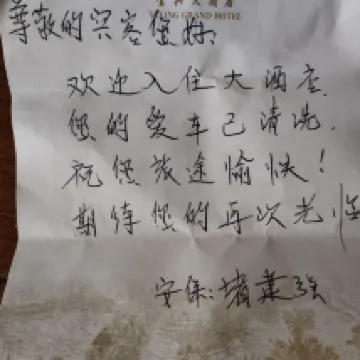 GRAND HOTEL
尊敬的宾客您好:
欢迎入住大酒店.
您的爱车已清洗.
祝您旅途愉快!
期待您的再次光临
安保: